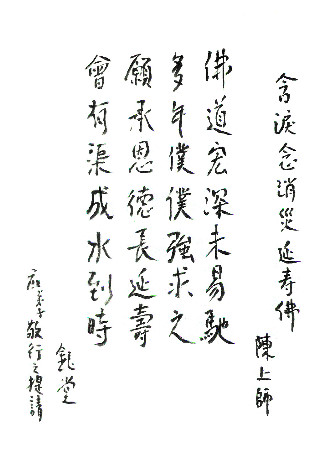 含淚念消災延寿佛
陳上師
佛道宏深未易馳
多年僕僕強求之
願承恩德長延壽
會有渠成水到時
鈍堂
應弟子敬行之提請